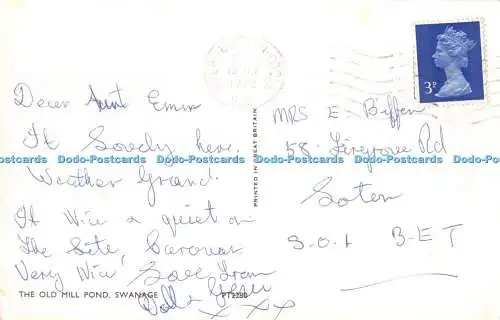 Dear Aunt Emm
It Lovely here.
Weather Grand.
It Nice & quiet on
the Site, Caravan
Very Nice Love from
x x x
THE OLD MILL POND, SWANAGE PT2280
PRINTED IN GREAT BRITAIN
3P
MRS E. Biffen
58 Firgrove Rd
Soton
S-O-1 B-E T
Dodo-Postcards Dodo-Postcards Dodo-Postcards Dodo-Postcards Dodo-Postcards Dodo-Postcards